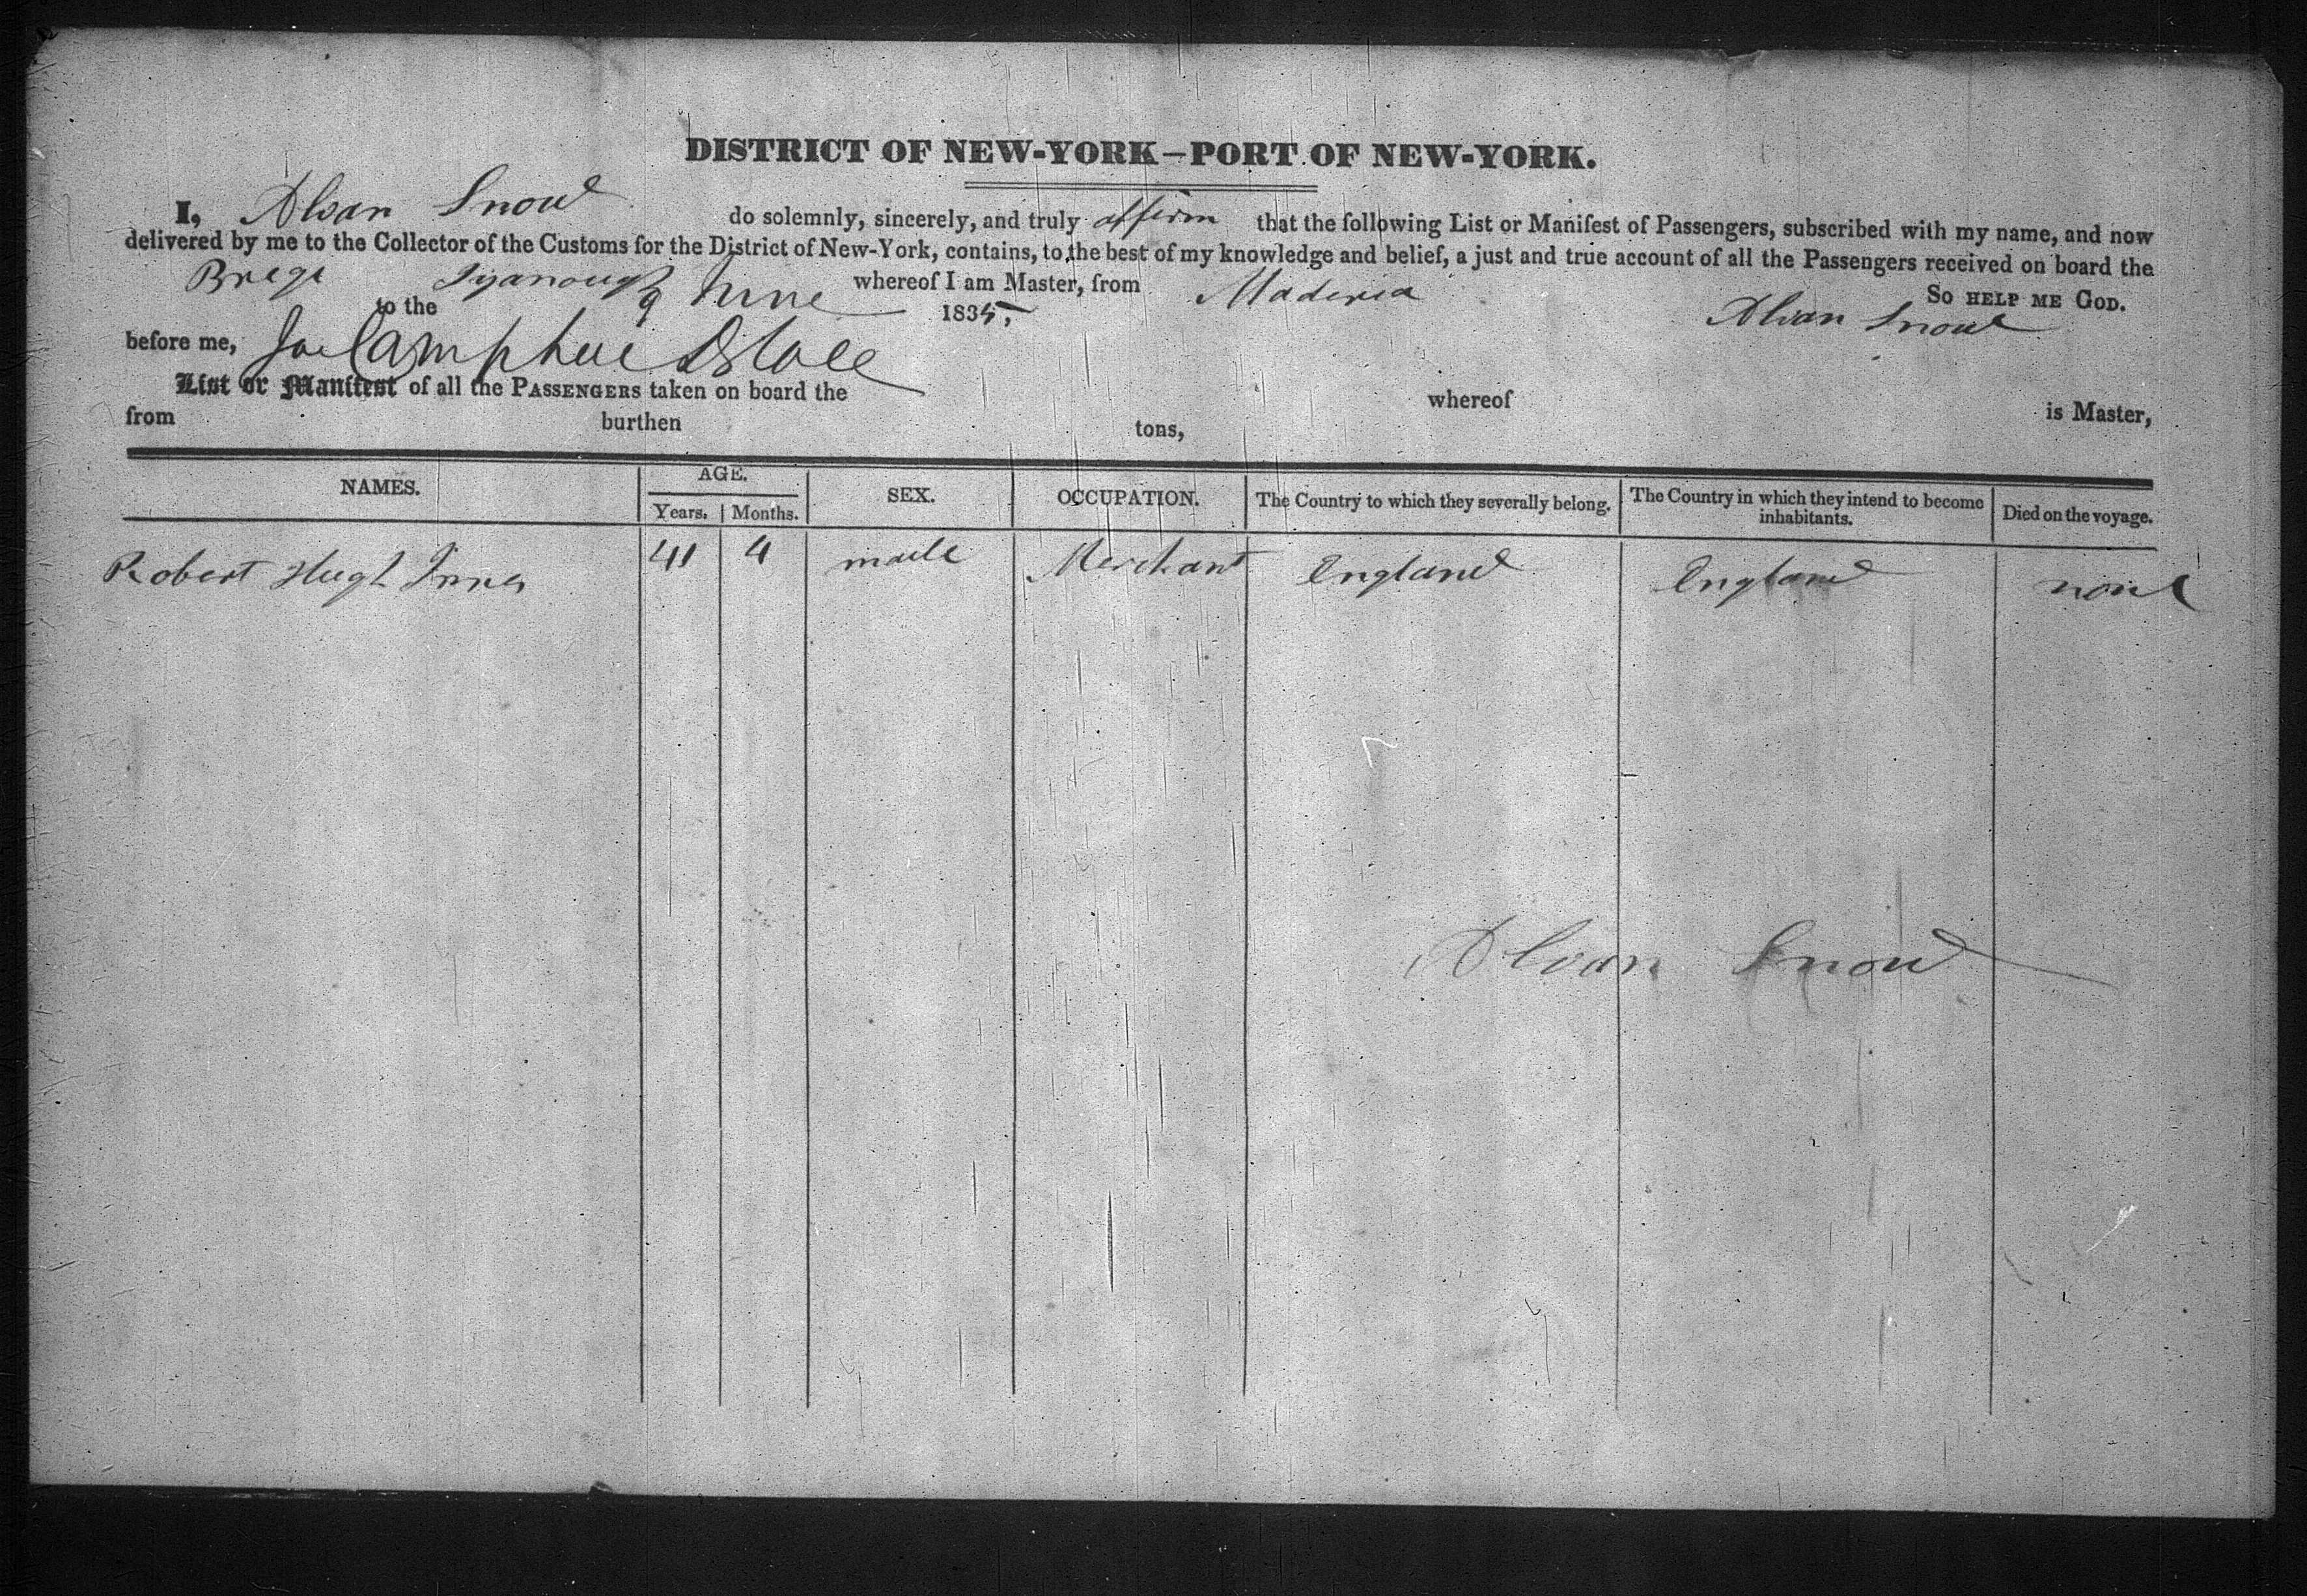 DISTRICT OF NEW-YORK—PORT OF NEW-YORK.
I, Alvan Snow do solemnly, sincerely, and truly affirm that the following List or Manifest of Passengers, subscribed with my name, and now
delivered by me to the Collector of the Customs for the District of New-York, contains, to the best of my knowledge and belief, a just and true account of all the Passengers received on board the
Brege Iyanough whereof I am Master, from Maderia So HELP ME GOD.
to the 9 June 1835, Alvan Snow
before me,
List or Manifest of all the PASSENGERS taken on board the whereof is Master,
from burthen tons,
NAMES. AGE. Years. Months. SEX. OCCUPATION. The Country to which they severally belong. The Country in which they intend to become inhabitants. Died on the voyage.
Robert Hugh Innes 41 4 male Merchant England England none
Alvan Snow